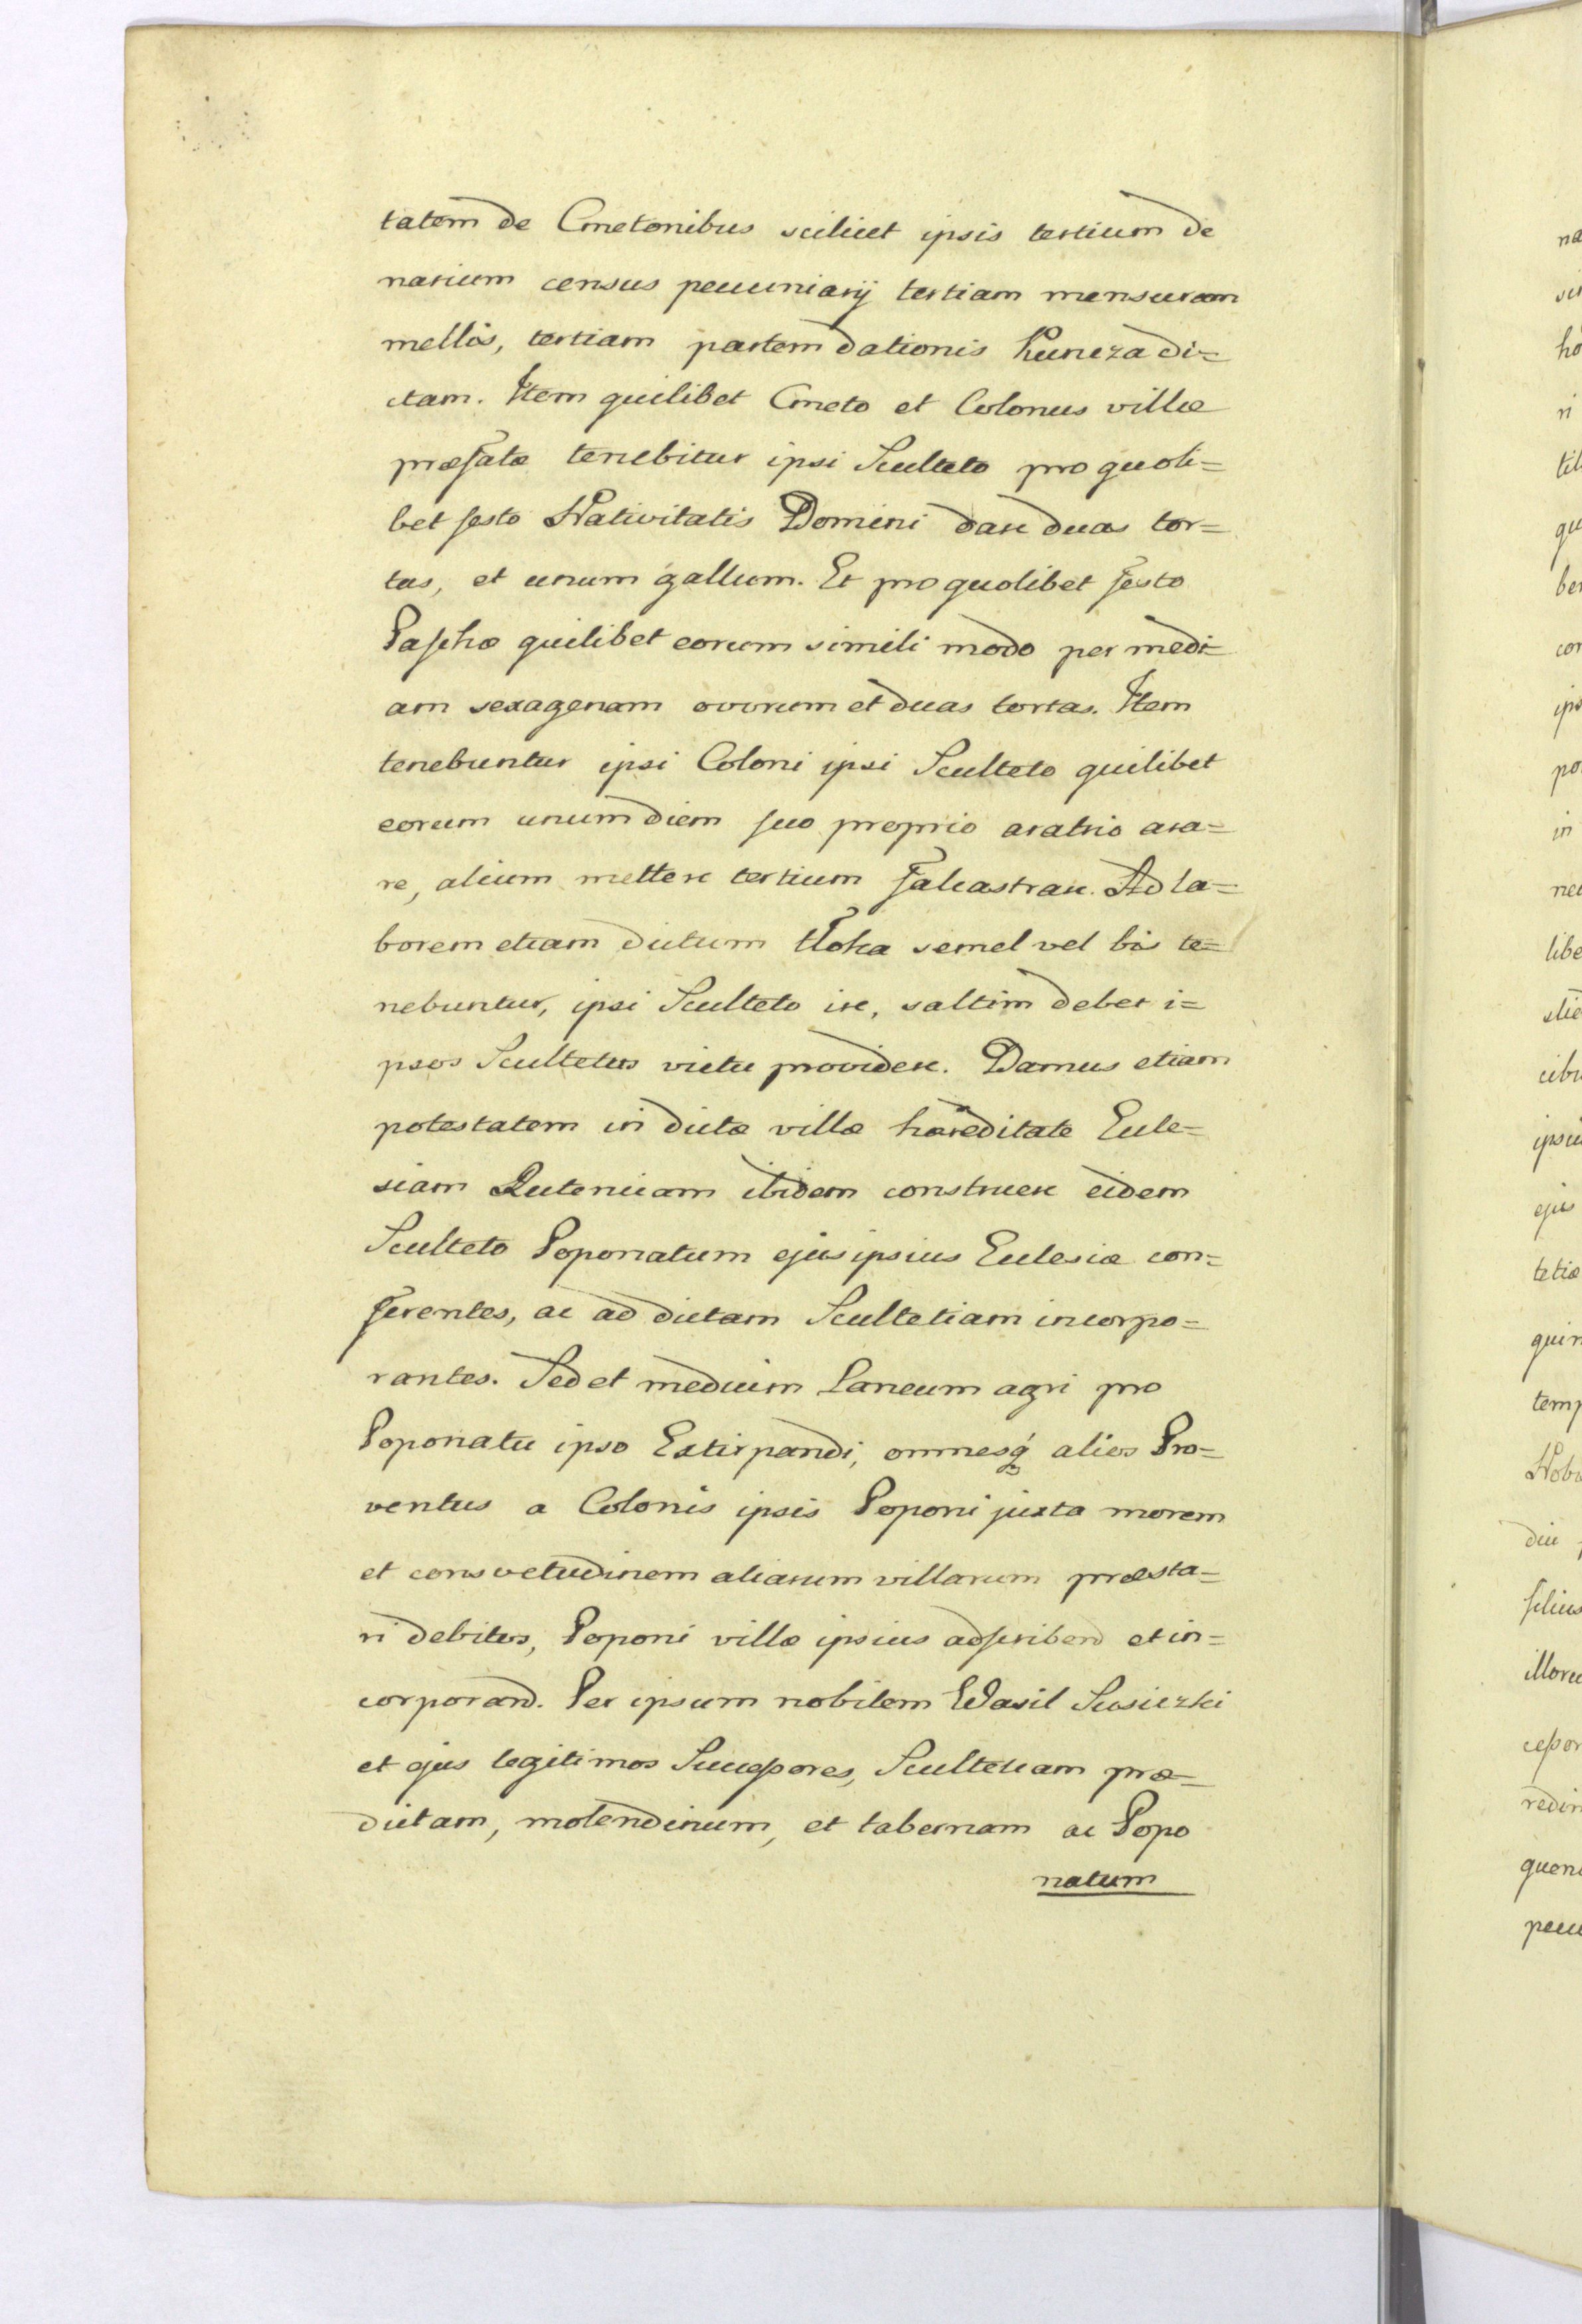 tatem de Cmetonibus scilicet ipsis tertium de
narium census pecuniarij tertiam mensuram
mellis, tertiam partem dationis Kuneza di=
ctam. Item quilibet Cmeto et Colonus villæ
præfatæ tenebitur ipsi Sculteto pro quoli=
bet festo Nativitatis Domini dare duas tor=
tas, et unum gallum. Et pro quolibet festo
Paschæ quilibet eorum simili modo per medi=
am sexagenam ovorum et duas tortas. Item
tenebuntur ipsi Coloni ipsi Sculteto quilibet
eorum unum diem suo proprio aratrio ara=
re, alium mettere tertium falcastrare. Ad la=
borem etiam dictum tloka semel vel bis te=
nebuntur, ipsi Sculteto ire, saltim debet i=
psos Scultetus victu providere. Damus etiam
potestatem in dictæ villæ hæreditate Eccle=
siam Rutenicam ibidem construere eidem
Sculteto Poponatum ejus ipsius Ecclesiæ con=
ferentes, ac ad dictam Scultetiam incorpo=
rantes. Sed et medium Laneum agri pro
Poponatu ipso Extirpandi, omnesq́ alios Pro=
ventus a Colonis ipsis Poponi juxta morem
et consvetudinem aliarum villarum præsta=
ri debitos, Poponi villæ ipsius adscribend et in=
corporand. Per ipsum nobilem Wasil Scosiczki
et ejus legitimos Successores, Scultetiam præ=
dictam, molendinum, et tabernam ac Popo
natum
na
ho
ri
qu
ber
cor
ips
po
in
nec
libe
ipsiu
ejus
tetiæ
temp
Nobi
diu
filius
illoru
cessor
redin
quem
pecu